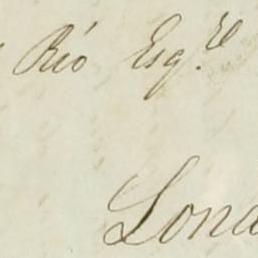 Rio Esq.re
Lond